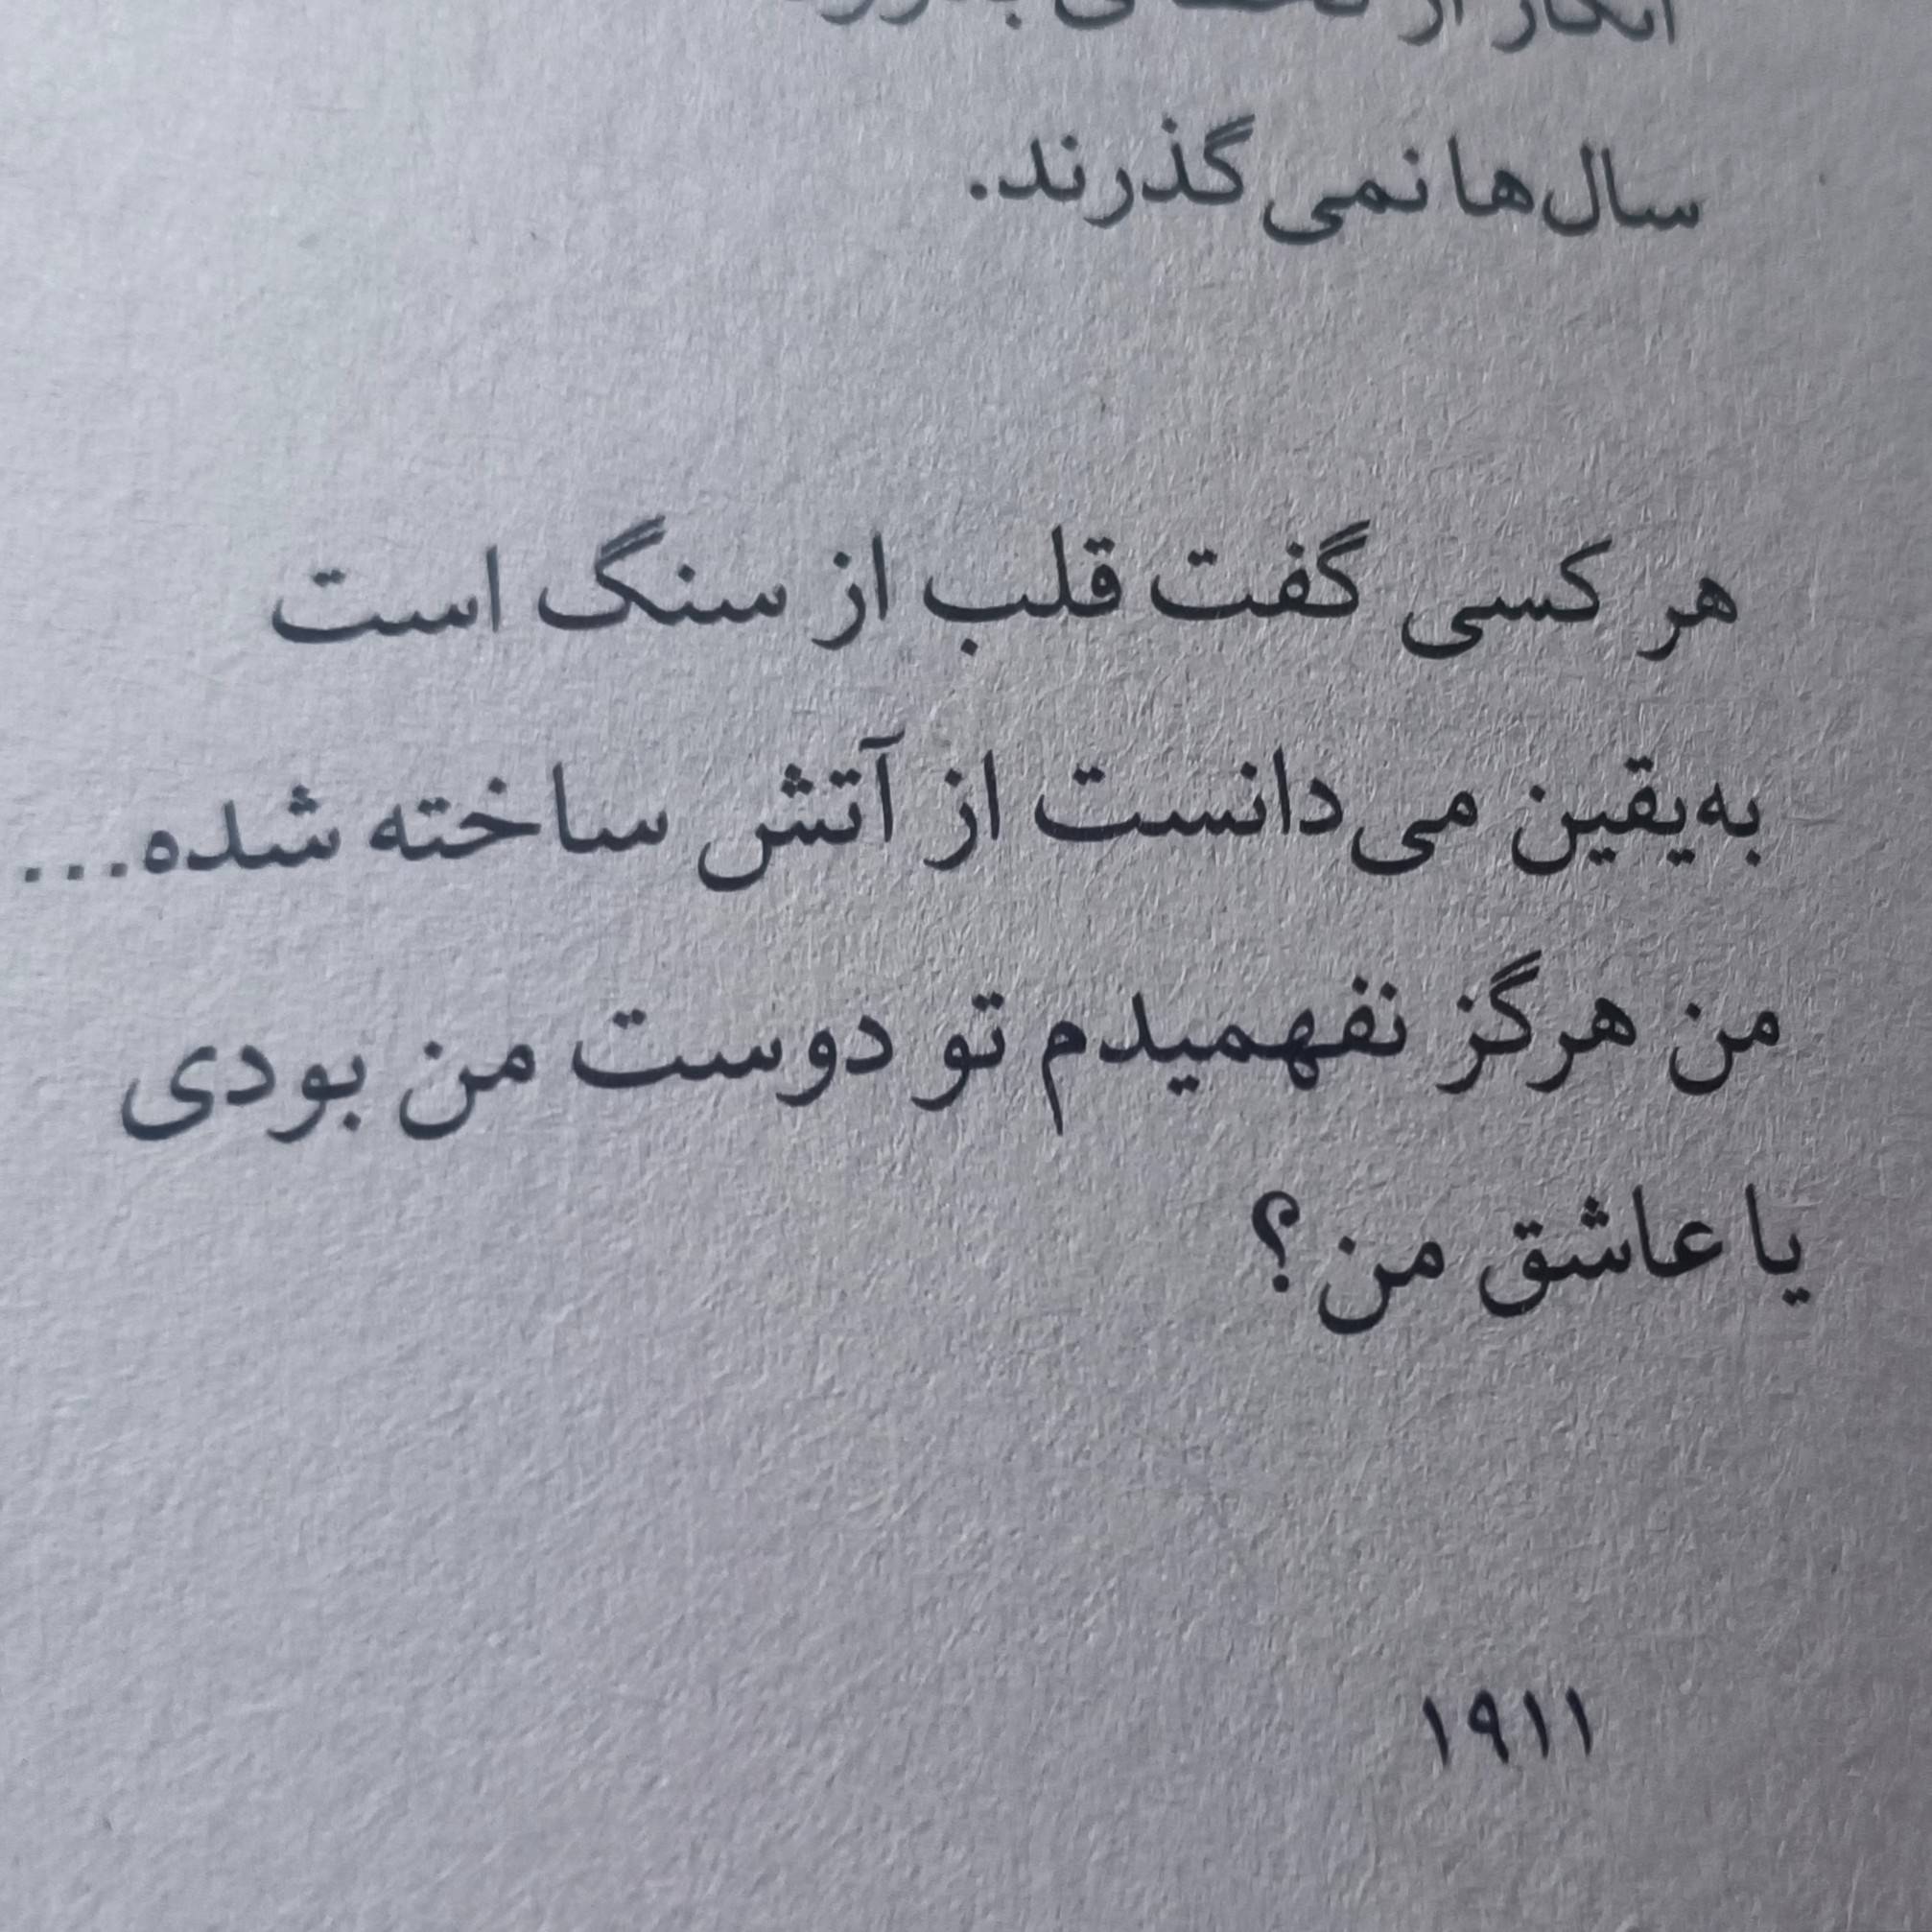 انگار از
سال‌ها نمی‌گذرند.
هر کسی گفت قلب از سنگ است
به‌یقین می‌دانست از آتش ساخته شده...
من هرگز نفهمیدم تو دوست من بودی
یا عاشق من؟
۱۹۱۱